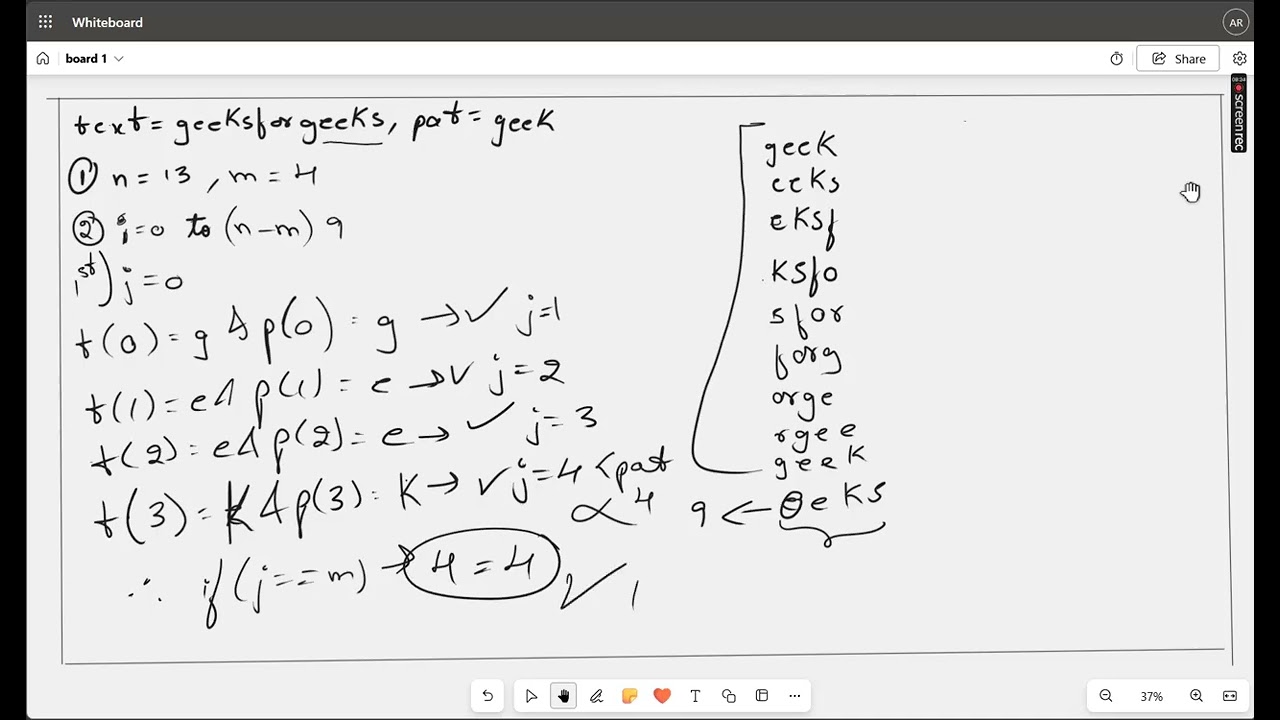 Whiteboard
AR
board 1
Share
screen rec
text = geeksforgeeks, pat = geek
① n = 13 , m = 4
② i=0 to (n-m) 9
1st) j = 0
t(0) = g & p(0) = g → ✓ j=1
t(1) = e & p(1) = e → ✓ j=2
t(2) = e & p(2) = e → ✓ j=3
t(3) = k & p(3) = k → ✓ j=4 < pat
4
∴ if (j==m) → 4 = 4 ✓ 1
geek
eeks
eksf
ksfo
sfor
forg
orge
rgee
geek
9 ← eeks
37%